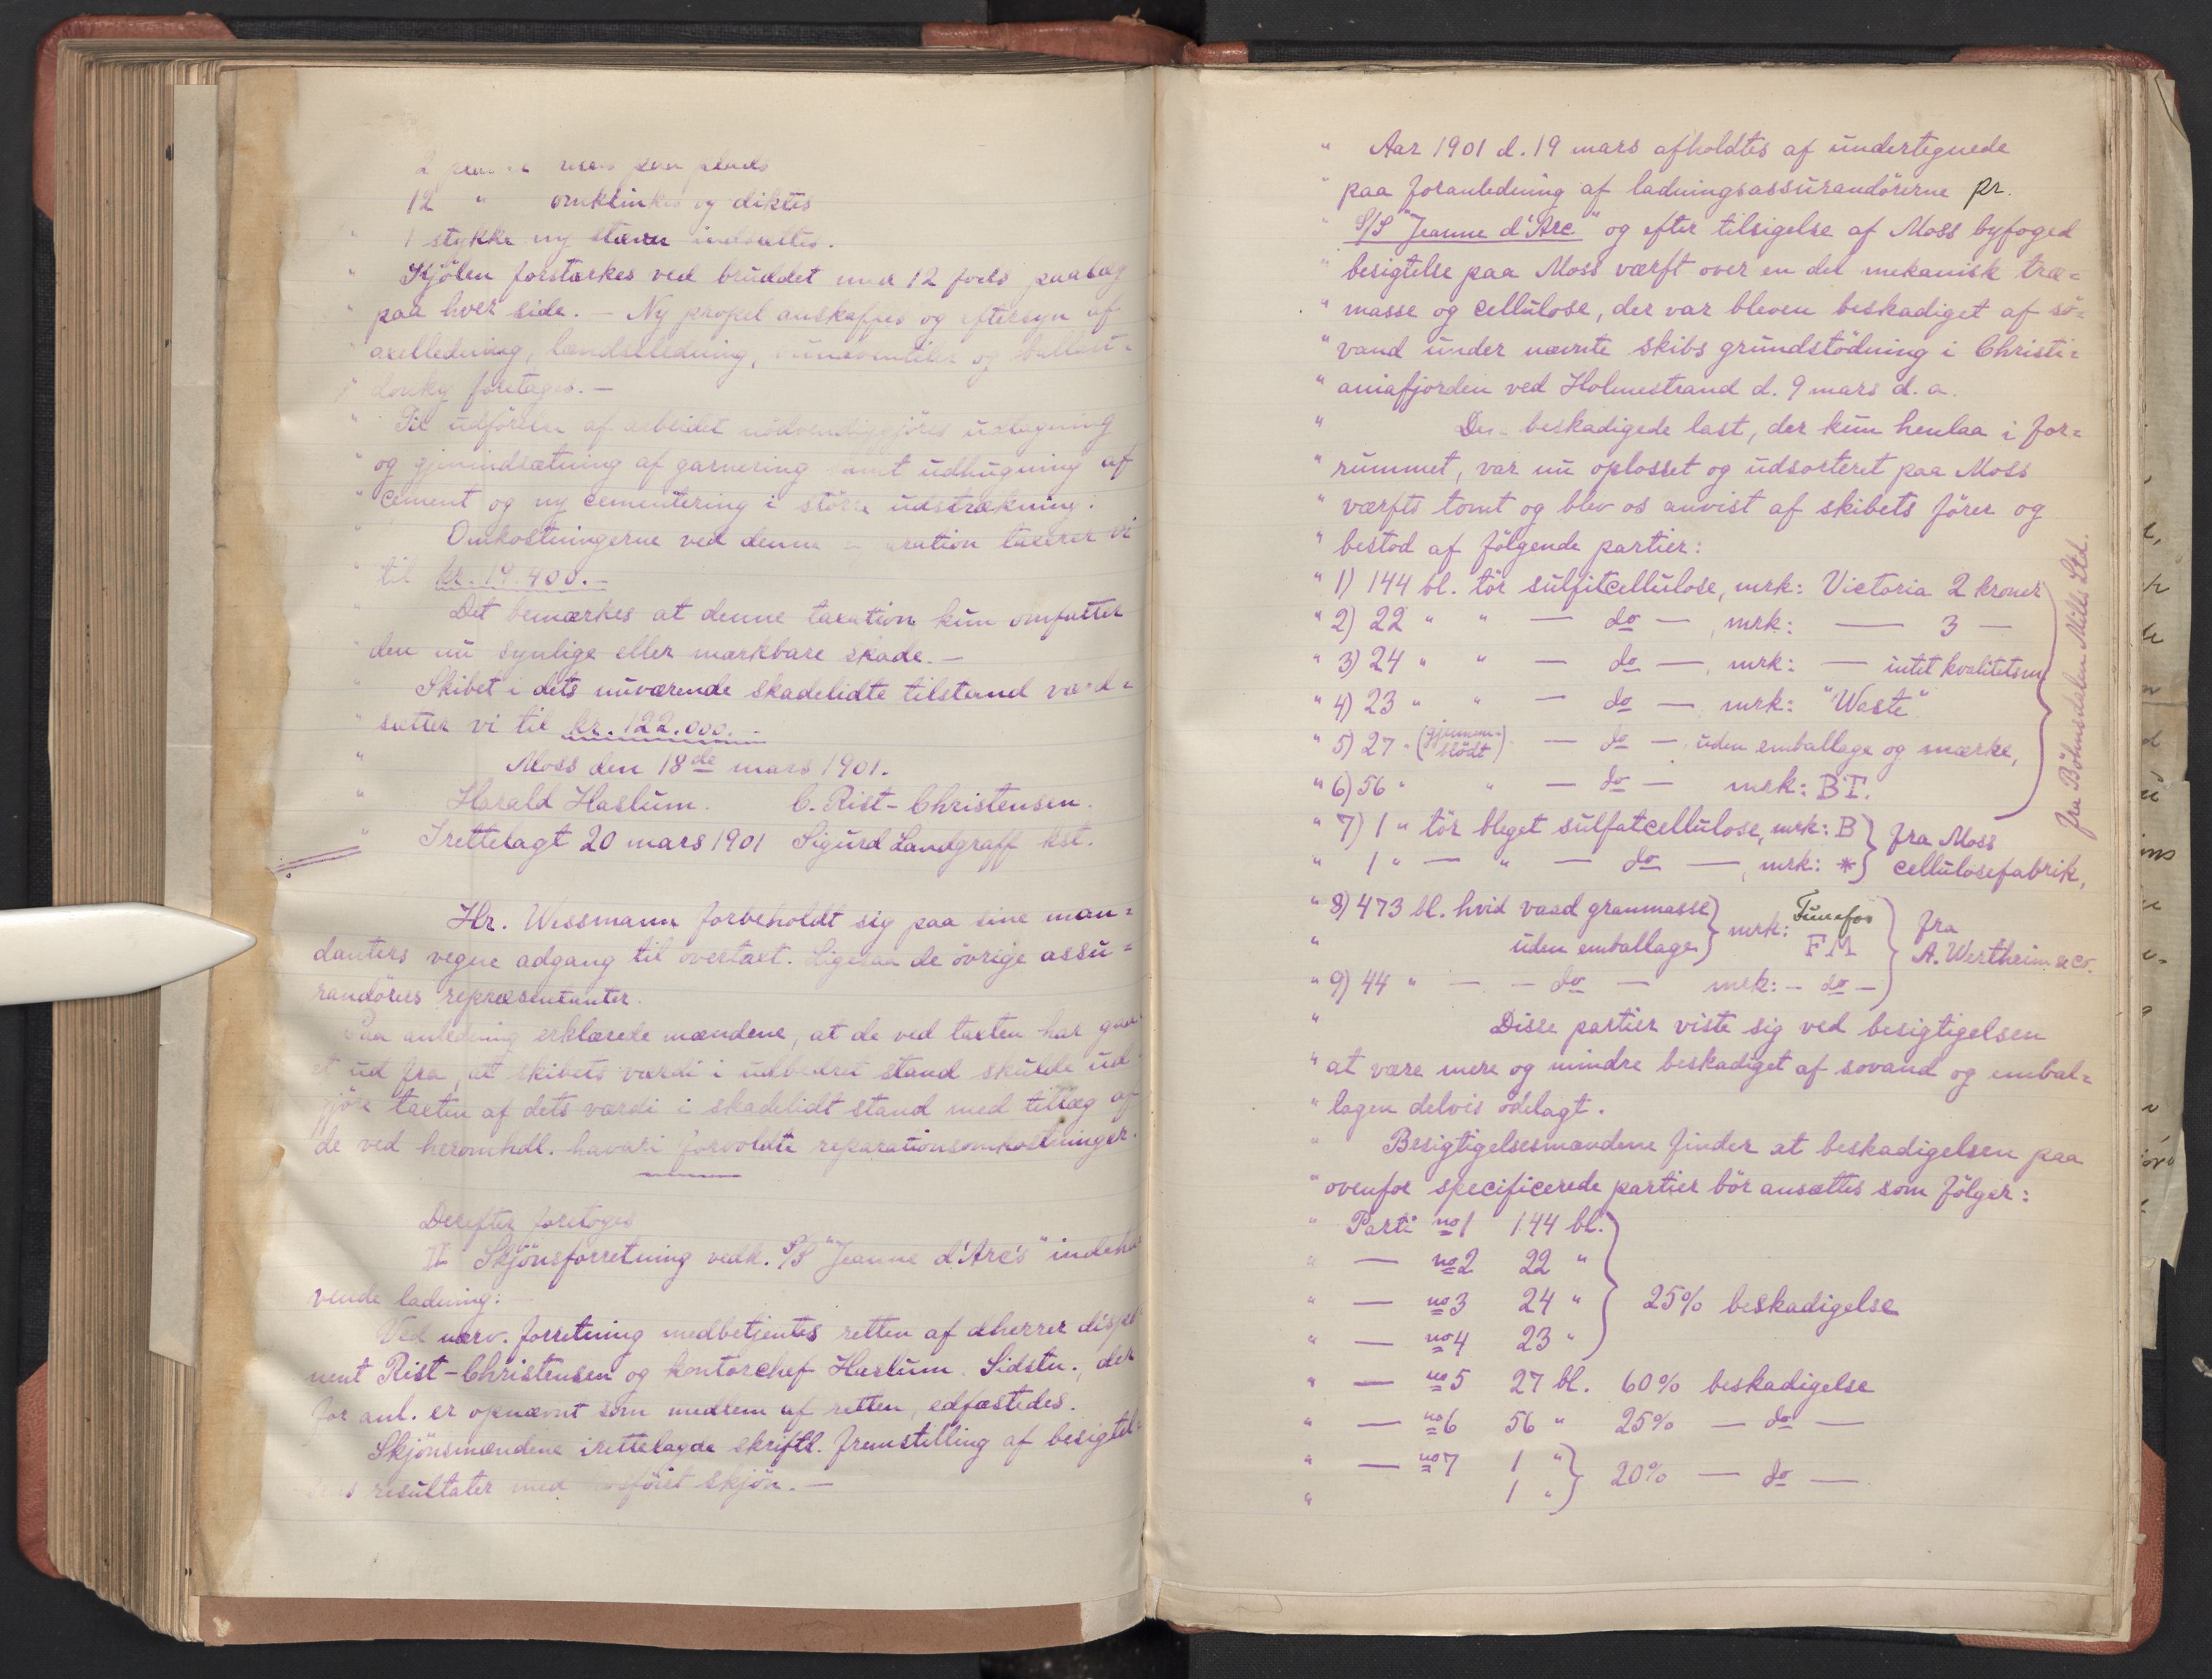 12 " omklinkes og diktes
1 stykke ny stævn indsættes.
" Kjölen forstærkes ved bruddet med 12 fods paalæg
" paa hver side. – Ny propel anskaffes og eftersyn af
" axelledning, lændseledning, bundventiler og ballast-
" donky foretages. –
" Til udförelse af arbeidet nödvendiggjöres udtagning
" og gjenindsætning af garnering samt udhugning af
" cement og ny cementering i större udstrækning.
" Omkostningerne ved denne reparation taxerer vi
" til kr. 19.400.–
" Det bemærkes at denne taxation kun omfatter
den nu synlige eller mærkbare skade. –
" Skibet i dets nuværende skadelidte tilstand værd=
" sætter vi til kr. 122.000. –
" Moss den 18de mars 1901.
" Harald Haslum. C. Rist-Christensen.
" Irettelagt 20 mars 1901 Sigurd Landgraff kst.
Hr. Wessmann forbeholdt sig paa sine man=
danters vegne adgang til overtaxt. Ligesaa de övrige assu=
randörers repræsentanter.
Paa anledning erklærede mændene, at de ved taxten har gaa-
et ud fra, at skibets værdi i udbedret stand skulde ud-
gjöre taxten af dets værdi i skadelidt stand med tillæg af
de ved heromhdl. havari forvoldte reparationsomkostninger.
Derefter foretoges
II Skjönsforretning vedk. S/S "Jeanne d'Arc's" indeha-
vende ladning:
Ved nærv. forretning medbetjentes retten af dherrer dispo-
nent Rist-Christensen og kontorchef Haslum. Sidstn., der
for anl. er opnævnt som medlem af retten, edfæstedes.
Skjönsmændene irettelagde skriftl. fremstilling af besigtel-
sens resultater med tilföiet skjön. –
" Aar 1901 d. 19 mars afholdtes af undertegnede
" paa foranledning af ladningsassurandörerne pr.
" S/S "Jeanne d'Arc" og efter tilsigelse af Moss byfoged
" besigtelse paa Moss værft over en del mekanisk træ=
" masse og cellulose, der var bleven beskadiget af sö=
" vand under nævnte skibs grundstödning i Christi=
" aniafjorden ved Holmestrand d. 9 mars d. a.
" Den beskadigede last, der kun henlaa i for=
" rummet, var nu oplosset og udsorteret paa Moss
" værfts tomt og blev os anvist af skibets förer og
" bestod af fölgende partier:
" 1) 144 bl. tör sulfitcellulose, mrk: Victoria 2 kroner
" 2) 22 " " — do — , mrk: — 3 —
" 3) 24 " " — do — , mrk: — intet kvalitetsm
" 4) 23 " " — do — mrk: "Waste"
" 5) 27 " (gjennem-blödt) — do — , uden emballage og mærke,
" 6) 56 " " — do — mrk: BT.
fra Böhnsdalen Mills Ltd.
" 7) 1 " tör bleget sulfatcellulose, mrk: B } fra Moss
" 1 " — " — do — , mrk: * } cellulosefabrik,
" 8) 473 bl. hvid vaad granmasse } mrk: Tunefos } fra
" uden emballage } FM A. Wertheim & co.
" 9) 44 " — — do — mrk: – do –
" Disse partier viste sig ved besigtigelsen
" at være mere og mindre beskadiget af sovand og embal=
" lagen delvis ödelagt.
" Besigtigelsesmændene finder at beskadigelsen paa
" ovenfor specificerede partier bör ansættes som fölger:
" Parti no 1 144 bl.
" — no 2 22 "
" — no 3 24 " } 25% beskadigelse
" — no 4 23 "
" — no 5 27 bl. 60% beskadigelse
" — no 6 56 " 25% — do —
" — no 7 1 " } 20% — do —
" 1 "